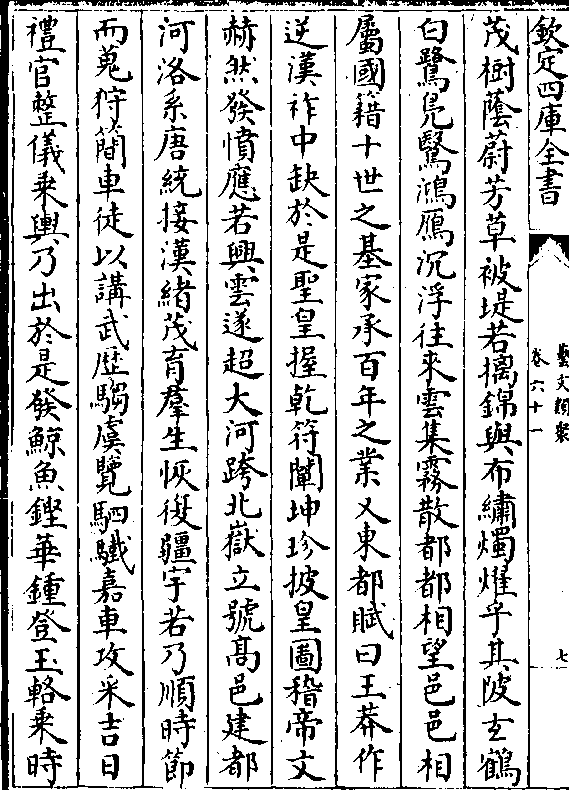 欽定四庫全書
藝文類聚
卷六十一
七
茂樹蔭蔚芳草被堤若摛錦與布繡燭燿乎其陂玄鶴
白鷺鳬鷖鴻鴈沉浮往來雲集霧散都都相望邑邑相
屬國籍十世之基家承百年之業又東都賦曰王莽作
逆漢祚中缺於是聖皇握乾符闡坤珍披皇圖稽帝文
赫然發憤應若興雲遂超大河跨北嶽立號髙邑建都
河洛系唐統接漢緒茂育羣生恢復疆宇若乃順時節
而蒐狩簡車徒以講武歴騶虞覽駟鐵嘉車攻采吉日
禮官整儀乘輿乃出於是發鯨魚鏗華鍾登玉輅乘時